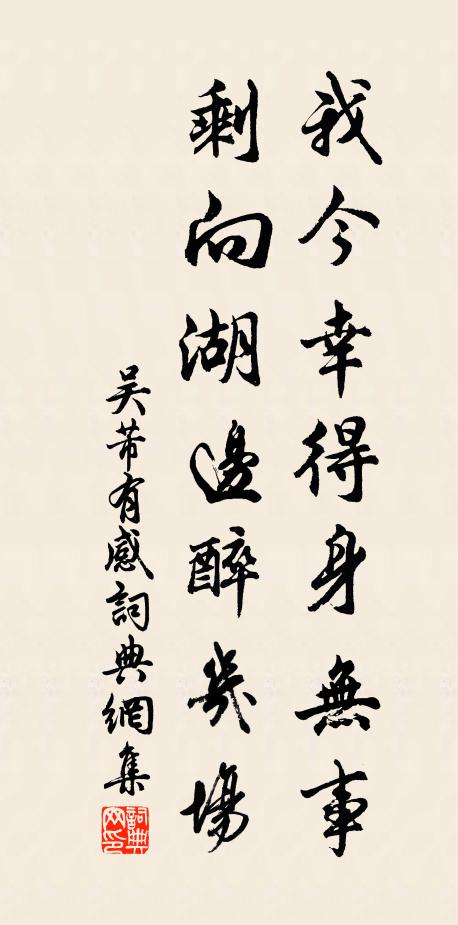 我今幸得身無事
剩向湖邊醉幾場
吴芾有感詞典網集
詞典網印